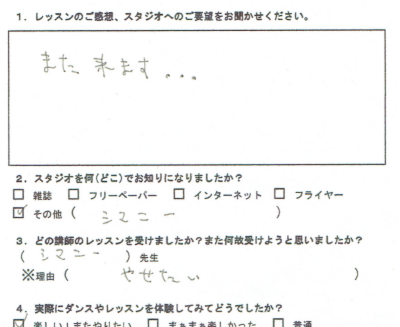 1. レッスンのご感想、スタジオへのご要望をお聞かせください。
また来ます...
2. スタジオを何(どこ)でお知りになりましたか？
□ 雑誌 □ フリーペーパー □ インターネット □ フライヤー
☑ その他（ シマニー ）
3. どの講師のレッスンを受けましたか？また何故受けようと思いましたか？
（ シマニー ）先生
※理由（ やせたい ）
4. 実際にダンスやレッスンを体験してみてどうでしたか？
☑ 楽しい！またやりたい □ まぁまぁ楽しかった □ 普通